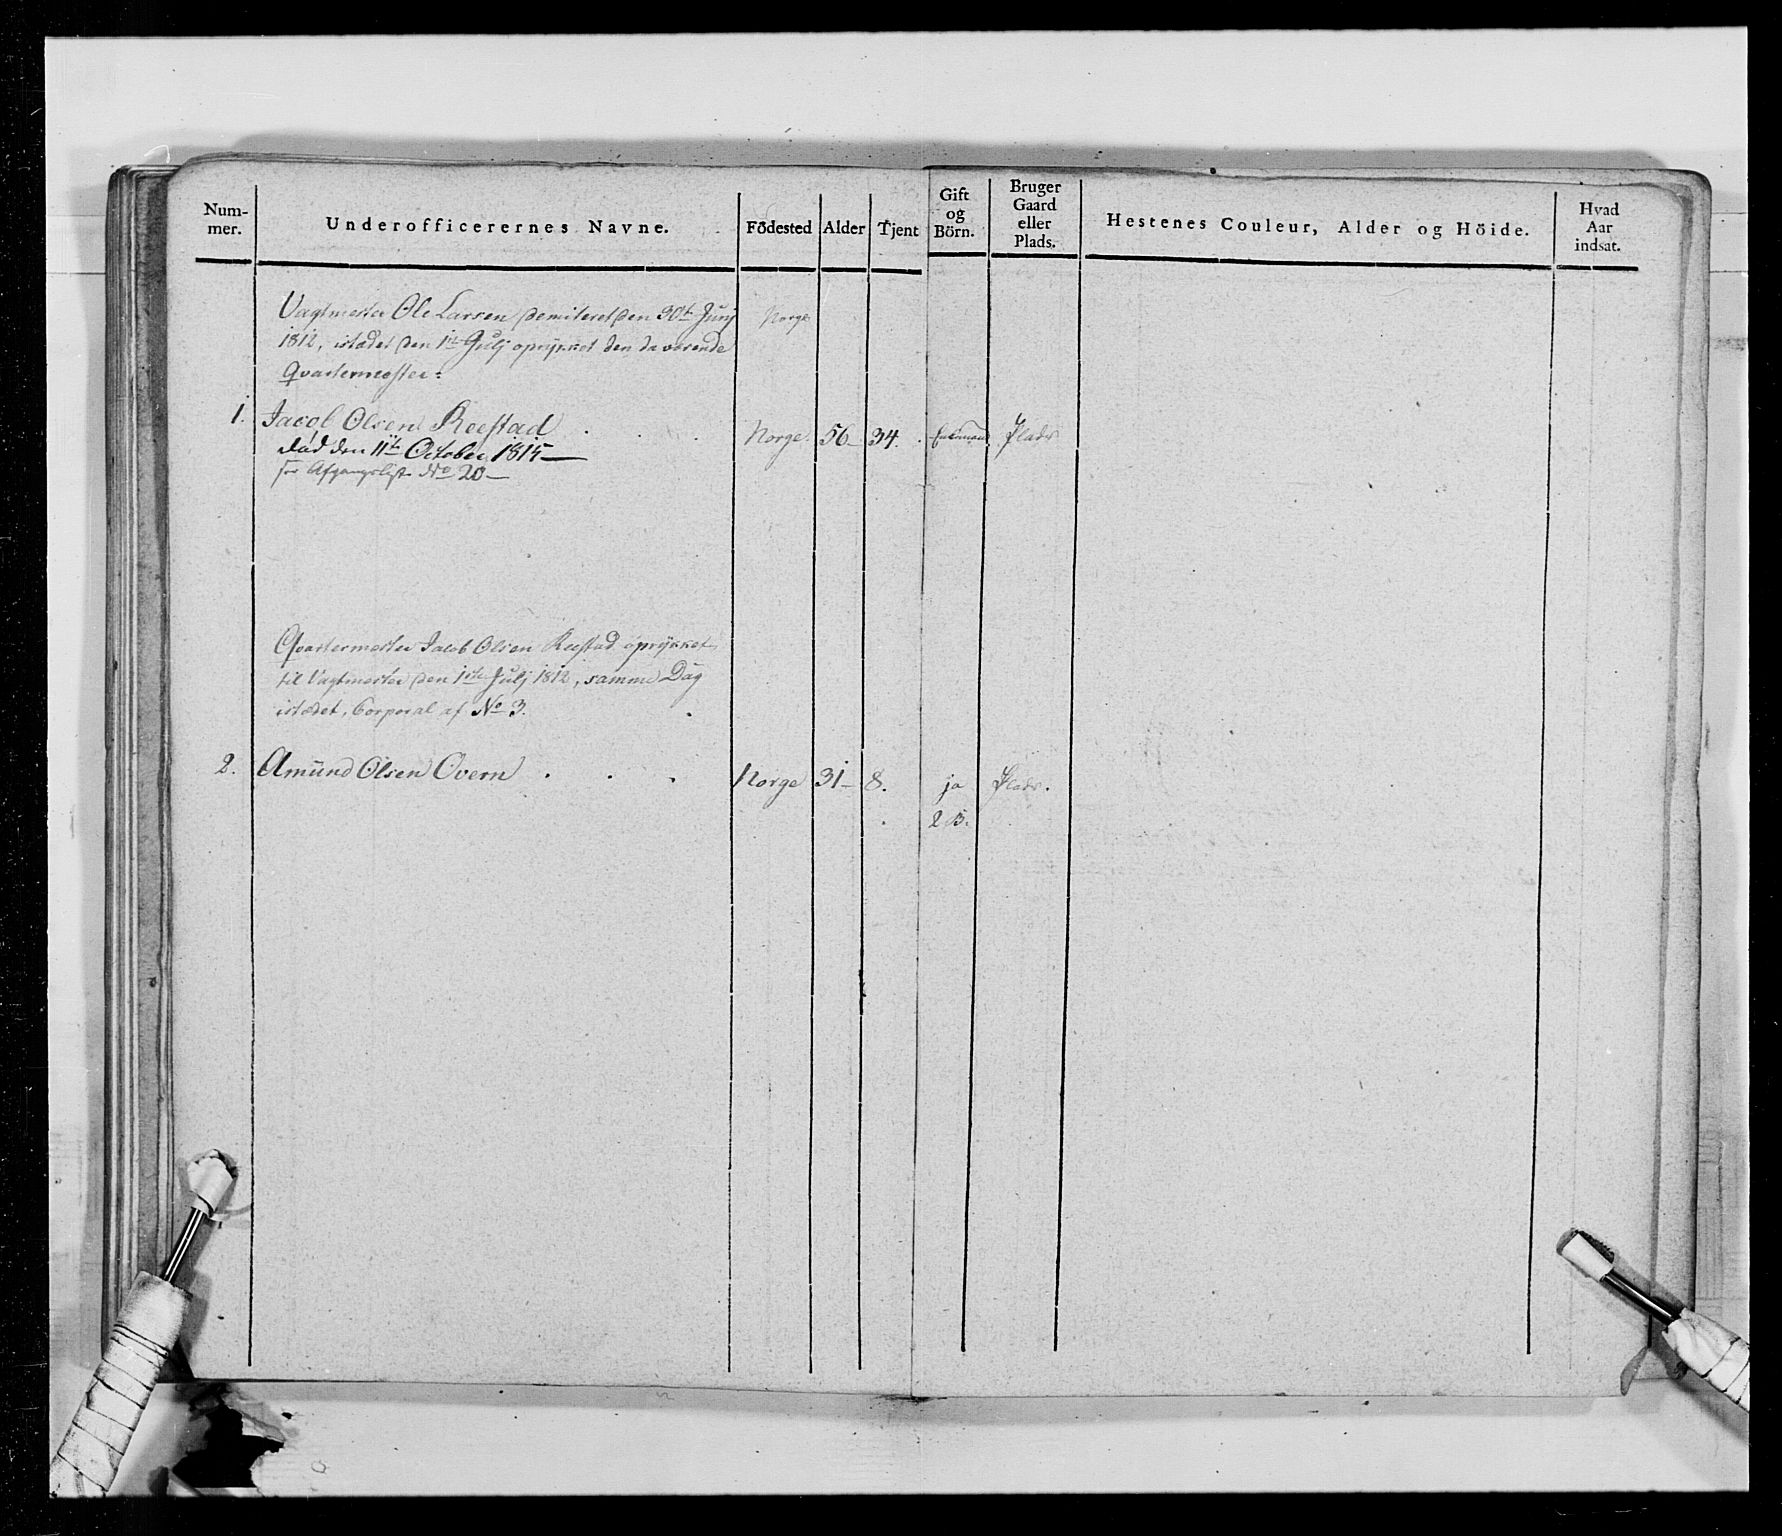 Num-
mer.
Underofficerernes Navne.
Födested
Alder
Tjent
Gift
og
Börn.
Bruger
Gaard
eller
Plads.
Hestenes Couleur, Alder og Höide.
Hvad
Aar
indsat.
Vagtmester Ole Larsen demiteret den 30te Junj Norge
1812, istædet den 1ste Julj oprykket den da værende
Qvartermester:
1. Jacob Olsen Reestad . . . Norge. 56 34. Enkemand Plads
død den 11te October 1815
see Afgangslist No 20
Qvartermester Jacob Olsen Reestad oprykket
til Vagtmester den 1ste Julj 1812, samme Dag
istædet, Corporal af No 3.
2. Amund Olsen Overn . . . Norge 31 8. ja Plads.
2 B.